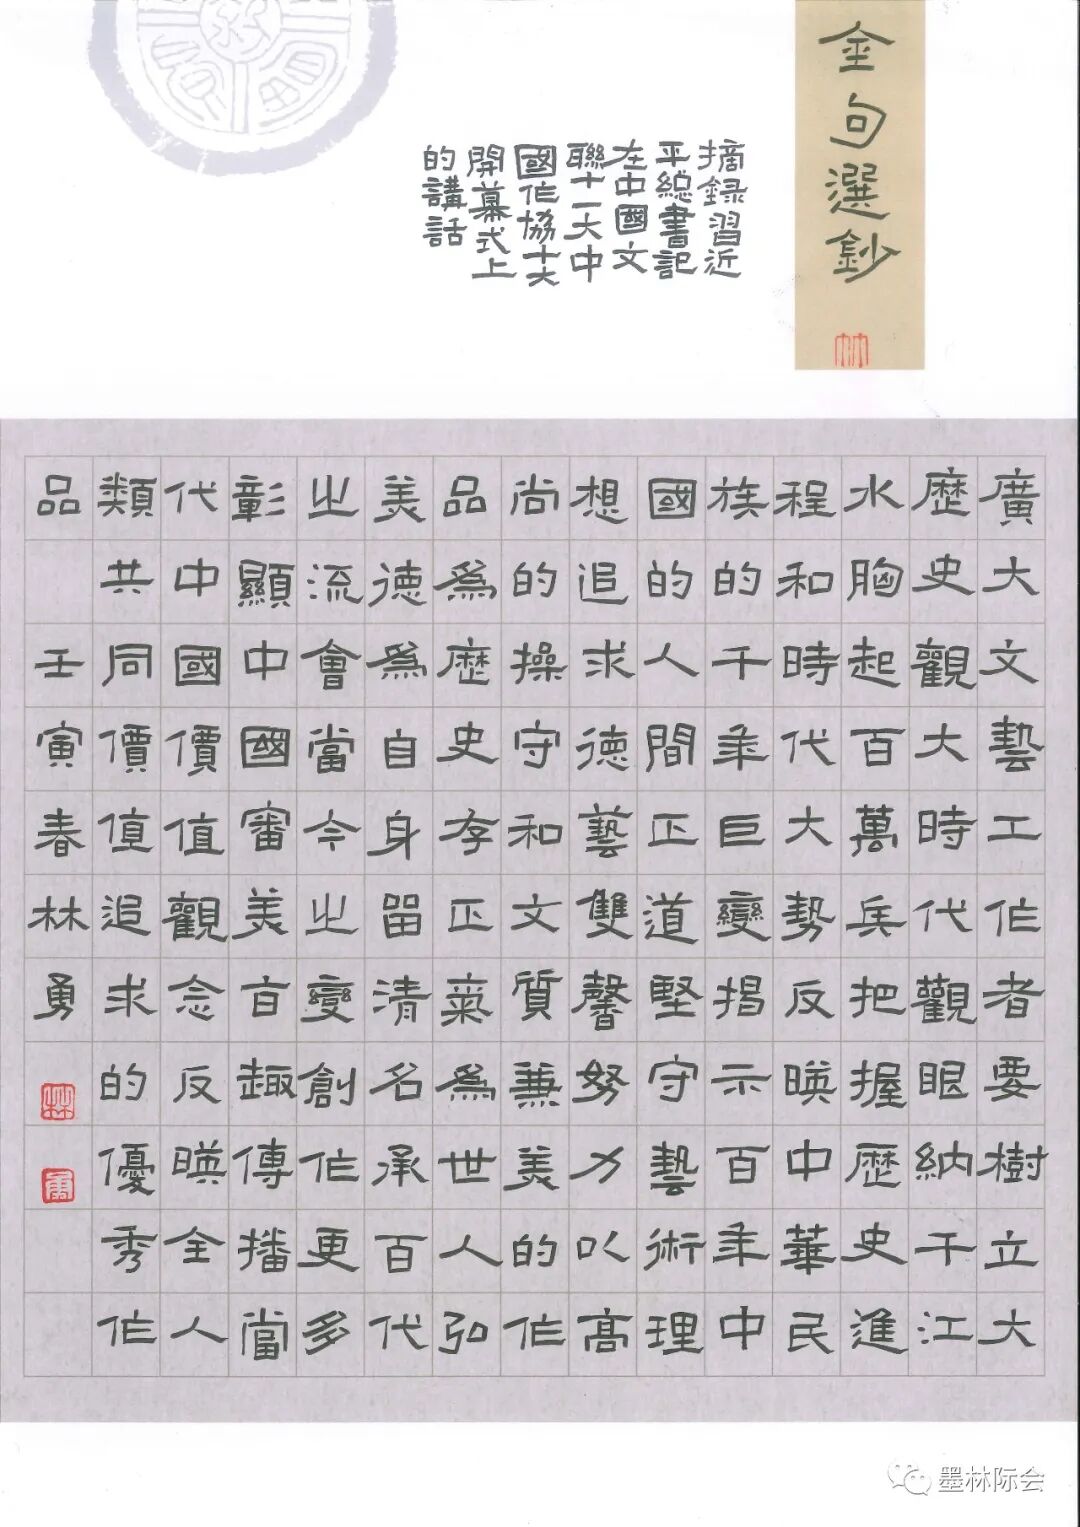 金句選鈔
林
摘録習近
平總書記
在中國文
聯十一大中
國作協十大
開幕式上
的講話
廣大文藝工作者要樹立大
歷史觀大時代觀眼納千江
水胸起百萬兵把握歷史進
程和時代大勢反暎中華民
族的千年巨變揭示百年中
國的人間正道堅守藝術理
想追求德藝雙馨努力以高
尚的操守和文質兼美的作
品爲歷史存正氣爲世人弘
美德爲自身留清名承百代
之流會當今之變創作更多
彰顯中國審美旨趣傳播當
代中國價值觀念反暎全人
類共同價值追求的優秀作
品 壬寅春林勇
林
勇
墨林际会